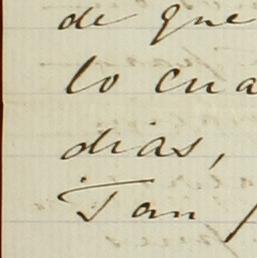 de que
lo cua
dias,
Tan